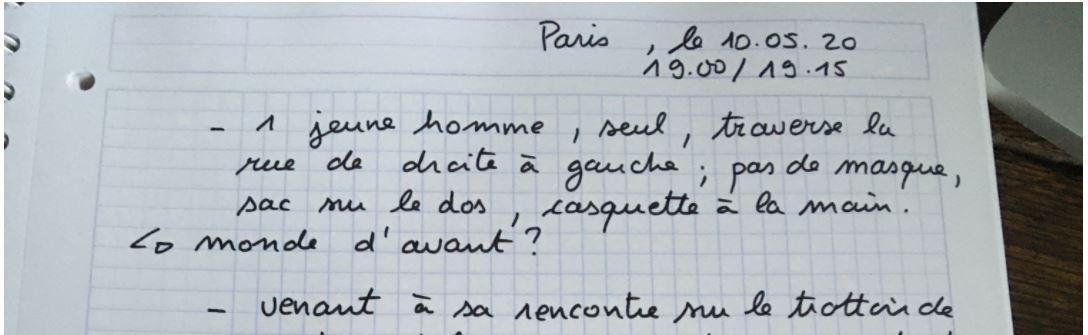 Paris , le 10.05.20
19.00 / 19.15
- 1 jeune homme, seul, traverse la
rue de droite à gauche ; pas de masque,
sac sur le dos, casquette à la main.
↳ monde d'avant ?
- venant à sa rencontre sur le trottoir de